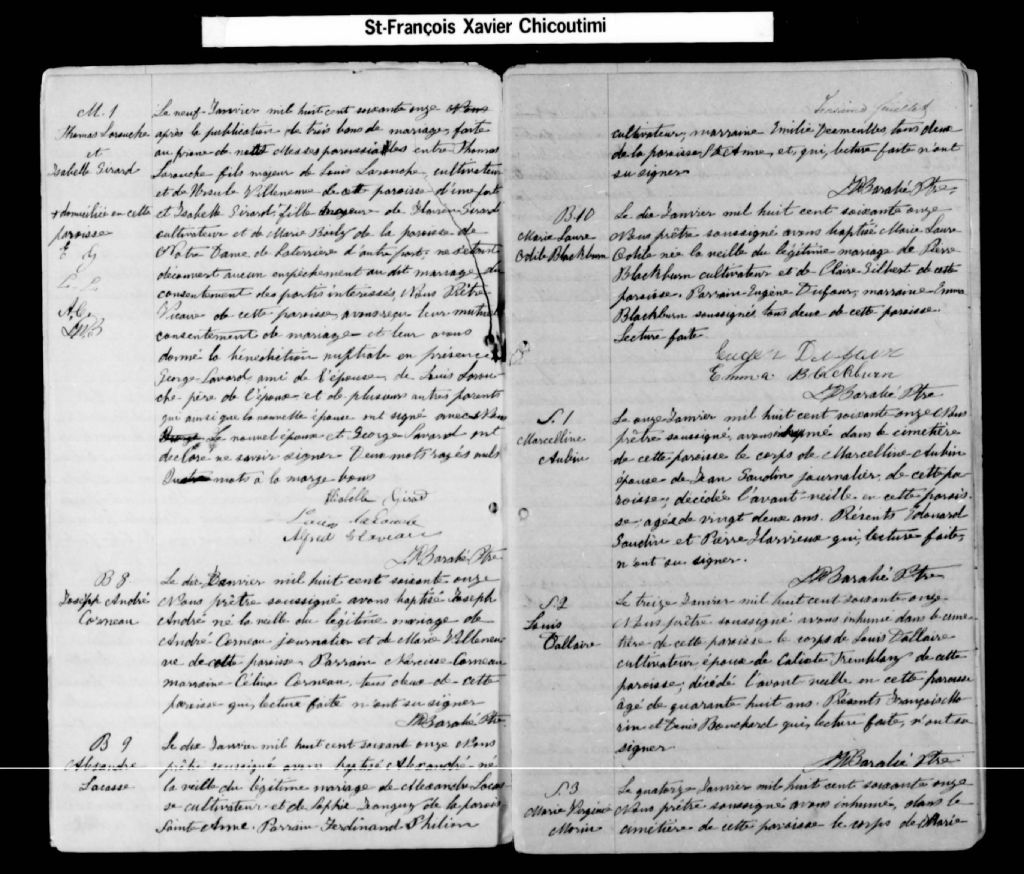 St-François Xavier Chicoutimi
M. 1
Thomas Larouche
et
Isabelle Girard
+ domiciliée en cette
paroisse
Le neuf Janvier mil huit cent soixante onze
après la publication de trois bans de mariage, faite
au prône de nos Messes paroissiales entre Thomas
Larouche fils majeur de Louis Larouche, cultivateur
et de Ursule Villeneuve de cette paroisse d'une part
et Isabelle Girard, fille majeure de Girard
cultivateur et de Marie Boily de la paroisse de
Notre Dame de Laterrière d'autre part; ne s'étant
découvert aucun empêchement au dit mariage, du
consentement des partis intéressés, Nous Prêtre
Vicaire de cette paroisse, avons reçu leur mutuel
consentement de mariage et leur avons
donné la bénédiction nuptiale en présence
George Savard ami de l'épouse, de Louis Larou-
che père de l'époux et de plusieurs autres parents
qui ainsi que la nouvelle épouse ont signé avec Nous
Le nouvel époux et George Savard ont
déclaré ne savoir signer. Deux mots rayés nuls
mots à la marge bons
Isabelle Girard
Alfred
Ptre
B 8
Joseph André
Corneau
Le dix Janvier mil huit cent soixante onze
Nous prêtre soussigné avons baptisé Joseph
André né la veille du légitime mariage de
André Corneau journalier et de Marie Villeneu
ve de cette paroisse. Parrain Narcisse Corneau
marraine Célina Corneau, tous deux de cette
paroisse qui, lecture faite n'ont su signer
Ptre
B 9
Alexandre
Lacasse
Le dix Janvier mil huit cent soixant onze Nous
prêtre soussigné avons baptisé Alexandre né
la veille du légitime mariage de Alexandre Lacas
se cultivateur et de Sophie Tanguay de la parois
Sainte Anne. Parrain Ferdinand Philion
feuillet
cultivateur, marraine Emilie Desmeulles, tous deux
de la paroisse Ste Anne, et, qui, lecture faite n'ont
su signer
Ptre
B. 10
Marie Laure
Odile Blackburn
Le dix Janvier mil huit cent soixante onze
Nous prêtre soussigné avons baptisé Marie Laure
Odile née la veille du légitime mariage de Pierre
Blackburn cultivateur et de Claire Gilbert de cette
paroisse. Parrain Eugène Dufour, marraine Emma
Blackburn soussignés tous deux de cette paroisse.
Lecture faite
Eugen Dufour
Emma Blackburn
Ptre
S. 1
Marcelline
Aubin
Le onze Janvier mil huit cent soixante onze Nous
prêtre soussigné, avons inhumé dans le cimetière
de cette paroisse le corps de Marcelline Aubin
épouse de Jean Gaudin journalier, de cette pa
roisse; décédée l'avant-veille en cette parois-
se, agée de vingt deux ans. Présents Edouard
Gaudin et Pierre qui, lecture faite,
n'ont su signer.
Ptre
S. 2
Louis
Dallaire
Le treize Janvier mil huit cent soixante onze
Nous prêtre soussigné avons inhumé dans le cime-
tière de cette paroisse le corps de Louis Dallaire
cultivateur époux de Calixte Tremblay de cette
paroisse, décédé l'avant veille en cette paroisse
âgé de quarante huit ans. Présents François Mo
rin et Denis Bouchard qui, lecture faite, n'ont su
signer
Ptre
S. 3
Marie Virginie
Morin
Le quatorze Janvier mil huit cent soixante onze
Nous prêtre soussigné avons inhumé, dans le
cimetière de cette paroisse le corps de Marie